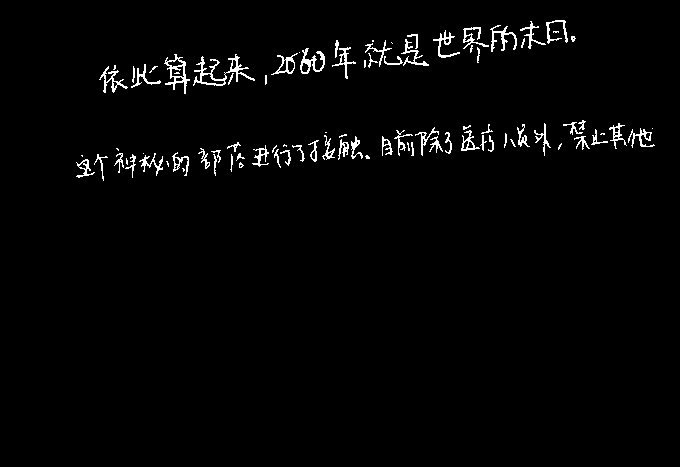 依此算起来,2060年,就是世界的末日.
这个神秘的部落进行了接触。目前除了医疗人员外,禁止其他